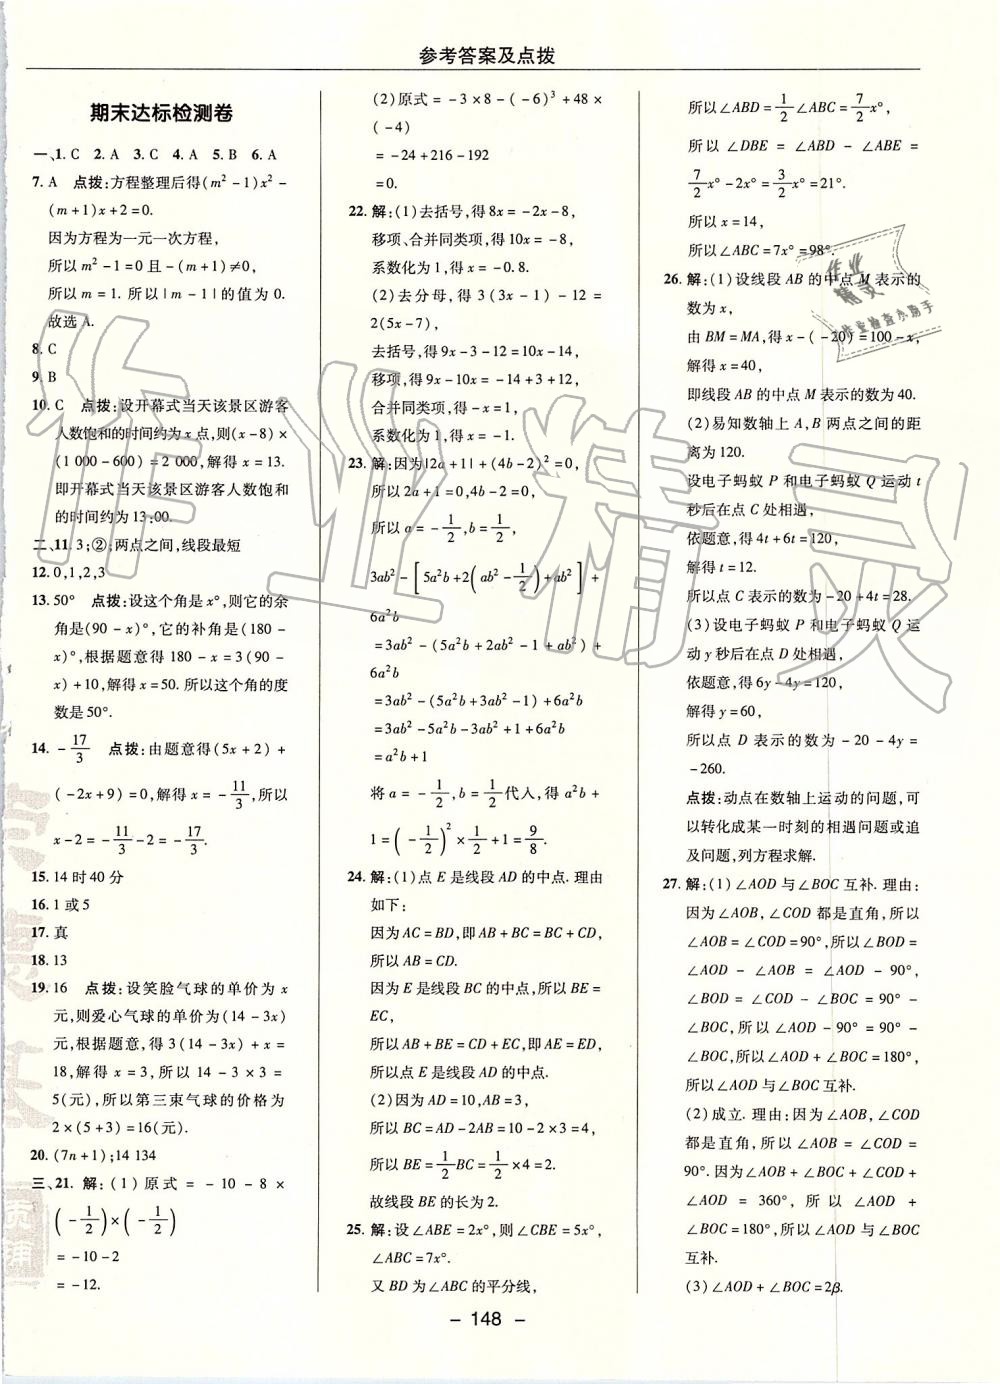 参考答案及点拨
期末达标检测卷
一、1. C 2. A 3. C 4. A 5. B 6. A
7. A 点拨:方程整理后得(m² -1)x² -
(m+1)x+2=0.
因为方程为一元一次方程,
所以 m² -1=0 且 -(m+1)≠0,
所以 m=1. 所以|m-1|的值为 0.
故选 A.
8. C
9. B
10. C 点拨:设开幕式当天该景区游客
人数饱和的时间约为 x 点,则(x-8)×
(1 000-600)=2 000,解得 x=13.
即开幕式当天该景区游客人数饱和
的时间约为 13:00.
二、11. 3;②;两点之间,线段最短
12. 0,1,2,3
13. 50° 点拨:设这个角是 x°,则它的余
角是(90-x)°,它的补角是(180-
x)°,根据题意得 180-x=3(90-
x)+10,解得 x=50. 所以这个角的度
数是 50°.
14. -17/3 点拨:由题意得(5x+2)+
(-2x+9)=0,解得 x=-11/3,所以
x-2=-11/3-2=-17/3.
15. 14 时 40 分
16. 1 或 5
17. 真
18. 13
19. 16 点拨:设笑脸气球的单价为 x
元,则爱心气球的单价为(14-3x)
元,根据题意,得 3(14-3x)+x=
18,解得 x=3,所以 14-3×3=
5(元),所以第三束气球的价格为
2×(5+3)=16(元).
20. (7n+1);14 134
三、21. 解:(1)原式=-10-8×
(-1/2)×(-1/2)
=-10-2
=-12.
(2)原式=-3×8-(-6)³+48×
(-4)
=-24+216-192
=0.
22. 解:(1)去括号,得 8x=-2x-8,
移项、合并同类项,得 10x=-8,
系数化为 1,得 x=-0.8.
(2)去分母,得 3(3x-1)-12=
2(5x-7),
去括号,得 9x-3-12=10x-14,
移项,得 9x-10x=-14+3+12,
合并同类项,得-x=1,
系数化为 1,得 x=-1.
23. 解:因为|2a+1|+(4b-2)²=0,
所以 2a+1=0,4b-2=0,
所以 a=-1/2,b=1/2,
3ab²-[5a²b+2(ab²-1/2)+ab²]+
6a²b
=3ab²-(5a²b+2ab²-1+ab²)+
6a²b
=3ab²-(5a²b+3ab²-1)+6a²b
=3ab²-5a²b-3ab²+1+6a²b
=a²b+1
将 a=-1/2,b=1/2代入,得 a²b+
1=(-1/2)²×1/2+1=9/8.
24. 解:(1)点 E 是线段 AD 的中点. 理由
如下:
因为 AC=BD,即 AB+BC=BC+CD,
所以 AB=CD.
因为 E 是线段 BC 的中点,所以 BE=
EC,
所以 AB+BE=CD+EC,即 AE=ED,
所以点 E 是线段 AD 的中点.
(2)因为 AD=10,AB=3,
所以 BC=AD-2AB=10-2×3=4,
所以 BE=1/2BC=1/2×4=2.
故线段 BE 的长为 2.
25. 解:设∠ABE=2x°,则∠CBE=5x°,
∠ABC=7x°.
又 BD 为∠ABC 的平分线,
所以∠ABD=1/2∠ABC=7/2x°,
所以 ∠DBE=∠ABD-∠ABE=
7/2x°-2x°=3/2x°=21°.
所以 x=14,
所以∠ABC=7x°=98°.
26. 解:(1)设线段 AB 的中点 M 表示的
数为 x,
由 BM=MA,得 x-(-20)=100-x,
解得 x=40,
即线段 AB 的中点 M 表示的数为 40.
(2)易知数轴上 A,B 两点之间的距
离为 120.
设电子蚂蚁 P 和电子蚂蚁 Q 运动 t
秒后在点 C 处相遇,
依题意,得 4t+6t=120,
解得 t=12.
所以点 C 表示的数为-20+4t=28.
(3)设电子蚂蚁 P 和电子蚂蚁 Q 运
动 y 秒后在点 D 处相遇,
依题意,得 6y-4y=120,
解得 y=60,
所以点 D 表示的数为-20-4y=
-260.
点拨:动点在数轴上运动的问题,可
以转化成某一时刻的相遇问题或追
及问题,列方程求解.
27. 解:(1)∠AOD 与∠BOC 互补. 理由:
因为∠AOB,∠COD 都是直角,所以
∠AOB=∠COD=90°,所以∠BOD=
∠AOD-∠AOB=∠AOD-90°,
∠BOD=∠COD-∠BOC=90°-
∠BOC,所以∠AOD-90°=90°-
∠BOC,所以∠AOD+∠BOC=180°,
所以∠AOD 与∠BOC 互补.
(2)成立. 理由:因为∠AOB,∠COD
都是直角,所以∠AOB=∠COD=
90°. 因为∠AOB+∠BOC+∠COD
+∠AOD=360°,所以∠AOD+
∠BOC=180°,所以∠AOD 与∠BOC
互补.
(3)∠AOD+∠BOC=2β.
- 148 -
作业精灵
作业
精灵
作业检查小助手